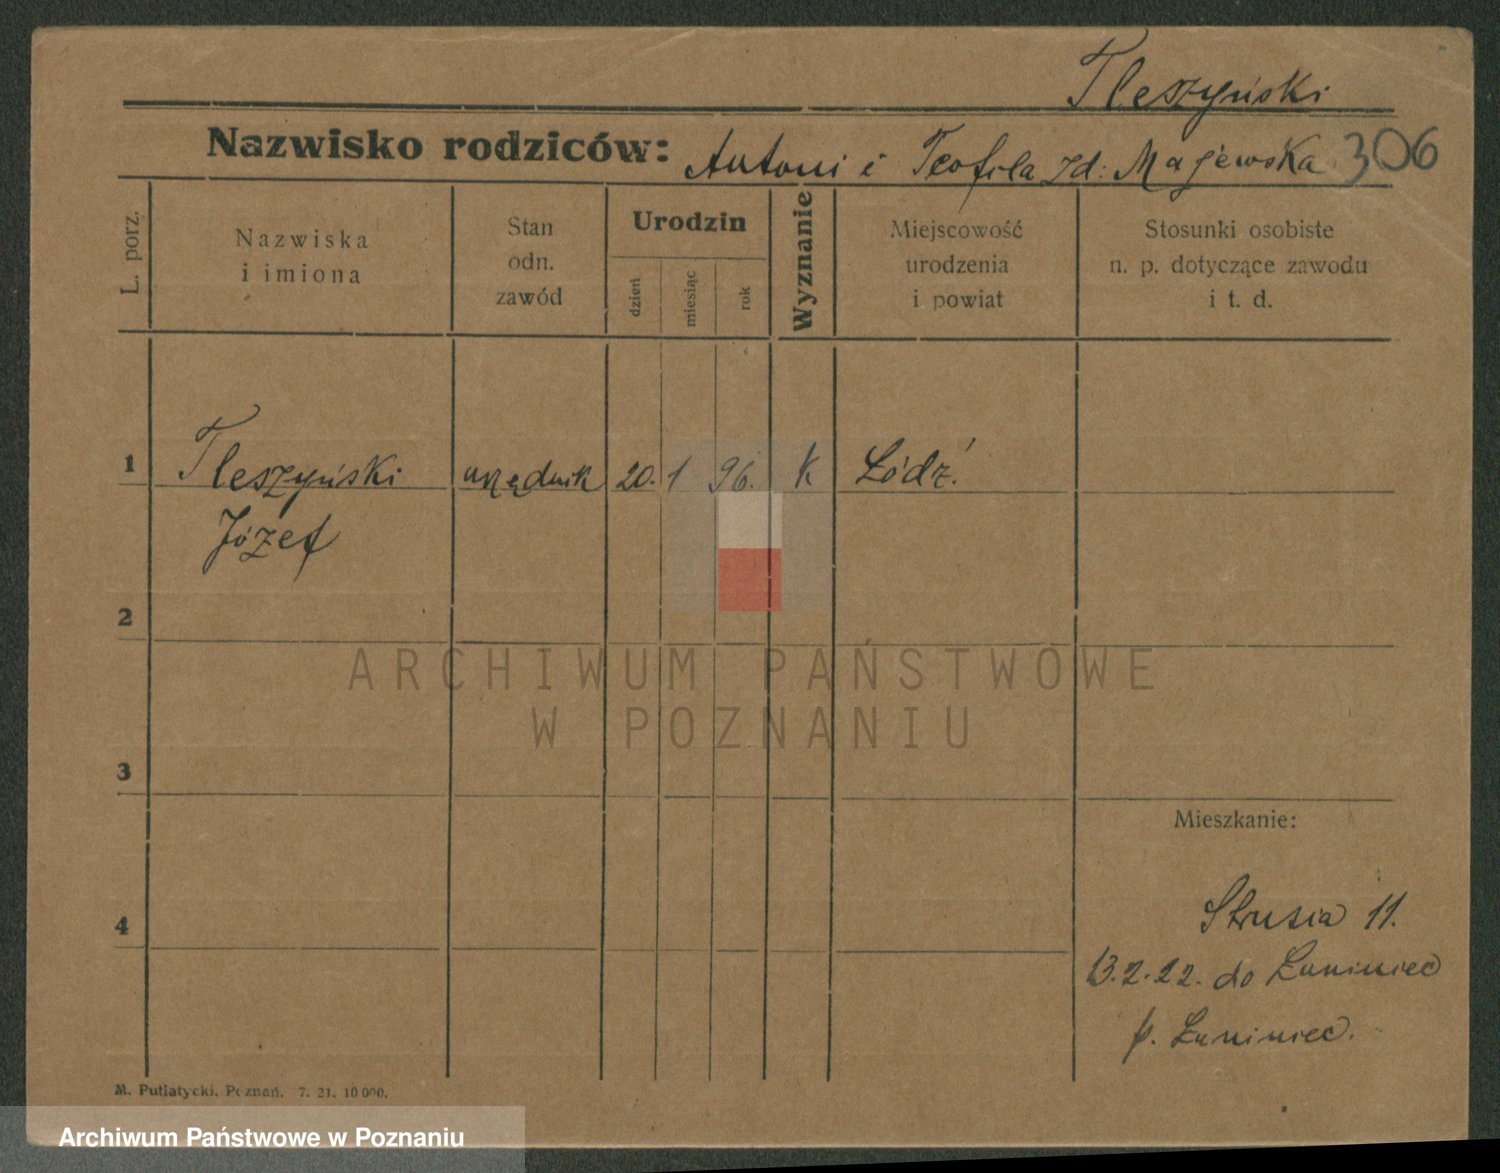 Tleszyński
Nazwisko rodziców: Antoni i Teofila zd: Majewska 306
L. porz.
Nazwiska
i imiona
Stan
odn.
zawód
Urodzin
dzień
miesiąc
rok
Wyznanie
Miejscowość
urodzenia
i powiat
Stosunki osobiste
n. p. dotyczące zawodu
i t. d.
1 Tleszyński urzędnik 20. 1 96. K Łódź.
Józef
2
ARCHIWUM PAŃSTWOWE
W POZNANIU
3
Mieszkanie:
4
Strusia 11.
13.2.22. do Łuniniec
p. Łuniniec.
M. Putiatycki, Poznań. 7. 21. 10 000.
Archiwum Państwowe w Poznaniu